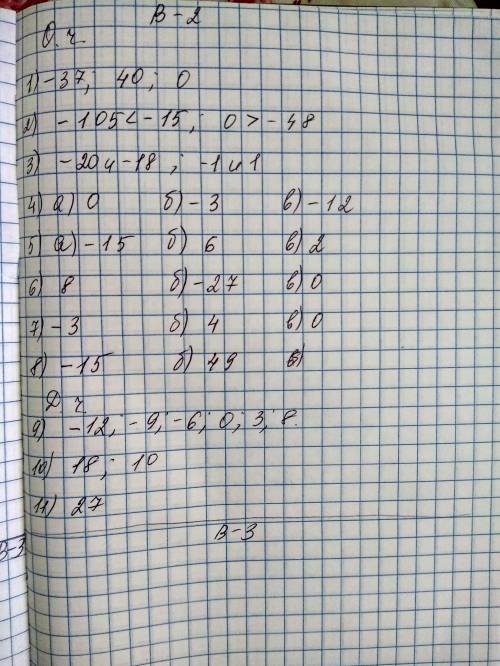 В-2
О.ч.
1) -37; 40; 0
2) -105 < -15; 0 > -48
3) -20 и -18; -1 и 1
4) а) 0 б) -3 в) -12
5) а) -15 б) 6 в) 2
6) 8 б) -27 в) 0
7) -3 б) 4 в) 0
8) -15 б) 49 в)
Д.ч.
9) -12; -9; -6; 0; 3; 8.
10) 18; 10
11) 27
В-3
В-3